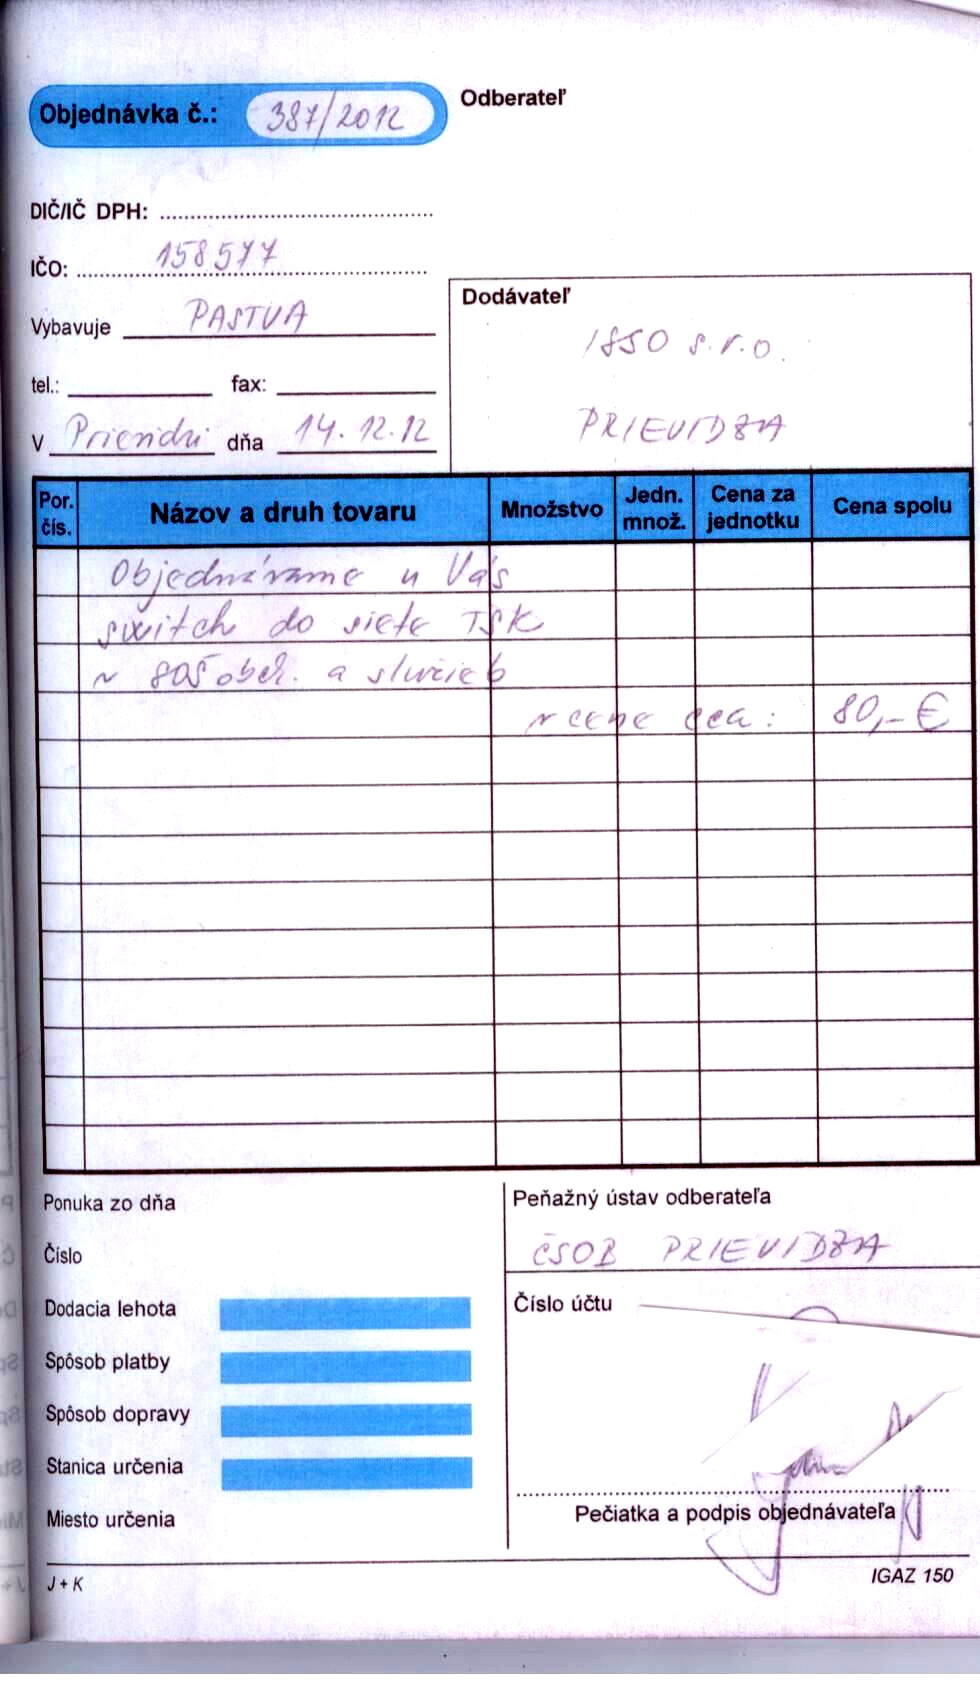 Objednávka č.: 387/2012
Odberateľ
DIČ/IČ DPH:
IČO: 158577
Vybavuje PASTVA
tel.: fax:
V Prievidzi dňa 14.12.12
Dodávateľ
1850 s.r.o.
PRIEVIDZA
Por. čís. Názov a druh tovaru Množstvo Jedn. množ. Cena za jednotku Cena spolu
Objednávame u Vás
switch do siete TSK
v SOŠ obch. a služieb
v cene cca: 80,- €
Ponuka zo dňa
Číslo
Dodacia lehota
Spôsob platby
Spôsob dopravy
Stanica určenia
Miesto určenia
Peňažný ústav odberateľa
ČSOB PRIEVIDZA
Číslo účtu
Pečiatka a podpis objednávateľa
J + K
IGAZ 150